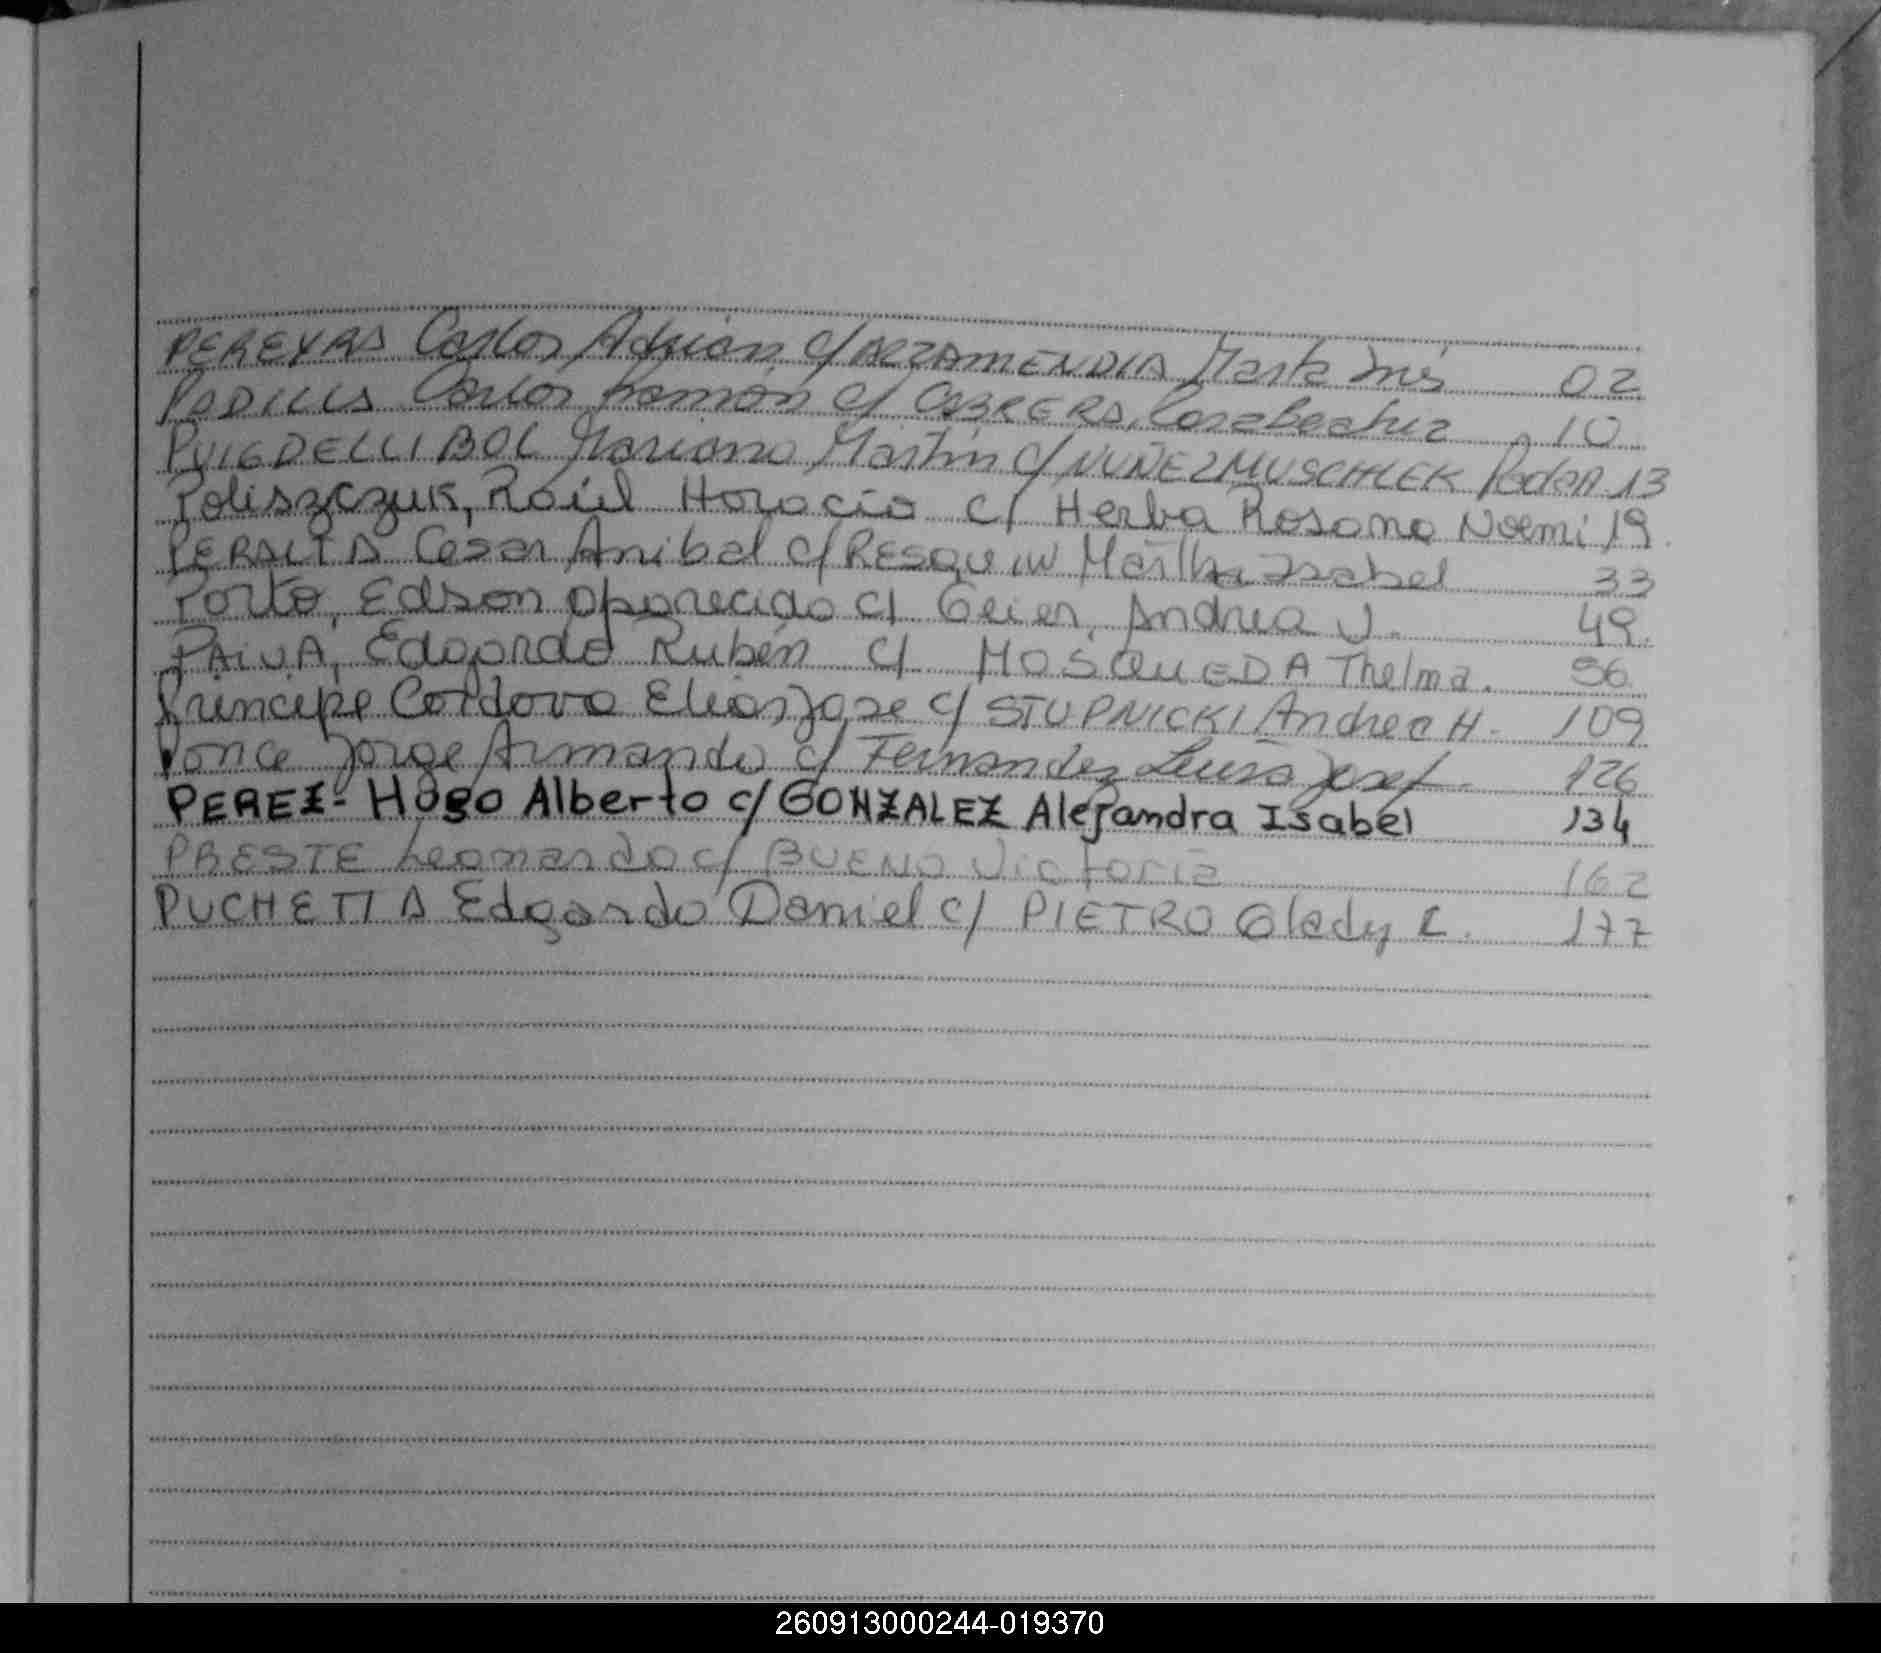 PEREYRA Carlos Adrián c/ ALZAMENDIA Marta Inés 02
PADILLA Carlos Ramón c/ CABRERA, Rosa beatriz 10
PUIGDELLIBOL Mariano Martín c/ NUÑEZ MUSCHLEK 13
Poliszczuk, Raúl Horacio c/ Herba Rosana Noemi 19
PERALTA Cesar Anibal c/ RESQUIN Martha Isabel 33
Porto, Edson Aparecido c/ Geier, Andrea J. 49
PAIVA, Edgardo Rubén c/ MOSQUEDA Thelma. 56
Principe Cordova Elias Jose c/ STUPNICKI Andrea H. 109
Ponce Jorge Armando c/ Fernandez Luisa Josef. 126
PEREZ- Hugo Alberto c/ GONZALEZ Alejandra Isabel 134
PRESTE Leonardo c/ BUENO Victoria 162
PUCHETTA Edgardo Daniel c/ PIETRO Glady L. 177
260913000244-019370